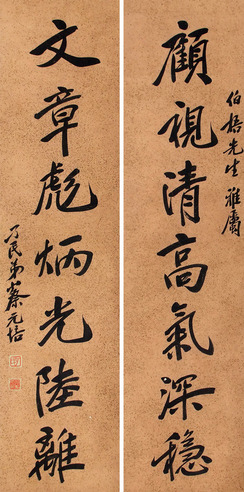 伯梧先生雅属
顧視清高氣深穩
文章彪炳光陸離
孑民弟蔡元培